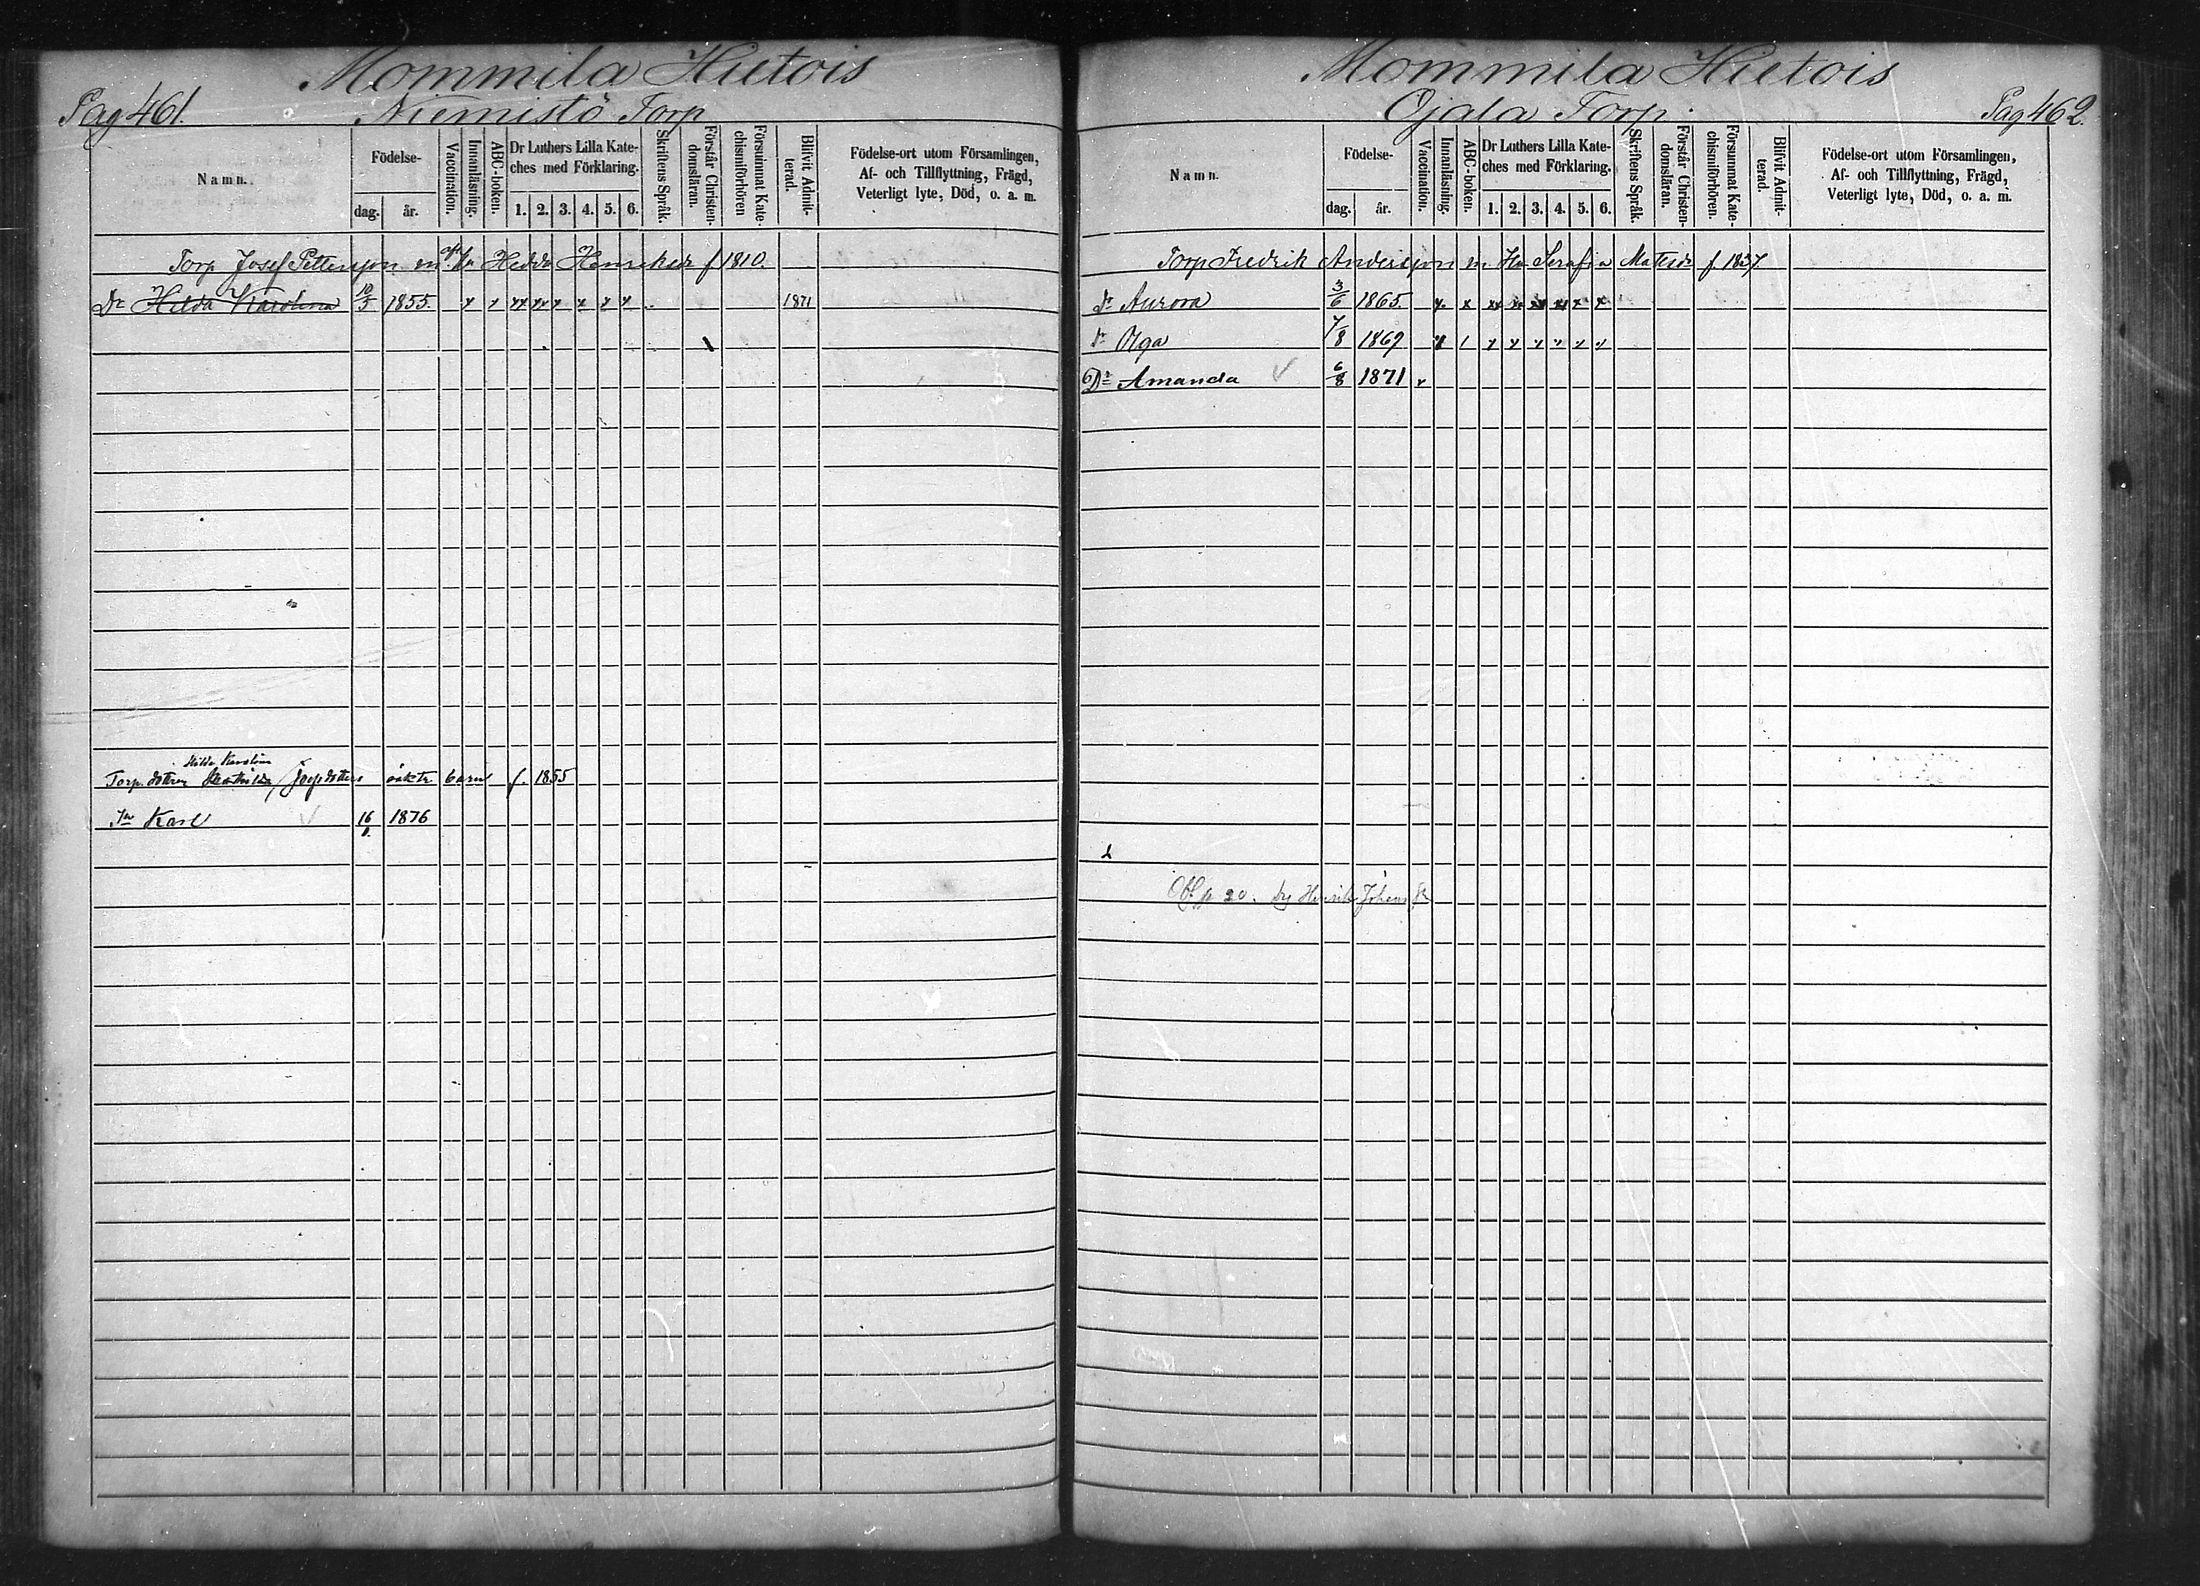 Mommila Hietois
Pag 461. Niemistö Torp
Namn. Födelse- dag. år. Vaccination. Innanläsning. ABC-boken. Dr Luthers Lilla Kateches med Förklaring. 1. 2. 3. 4. 5. 6. Skriftens Språk. Förstår Christendomsläran. Försummat Katechismiförhören Blifvit Admitterad. Födelse-ort utom Församlingen, Af- och Tillflyttning, Frägd, Veterligt lyte, Död, o. a. m.
Torp Josef Pettersson m Hedda Henriksdr f 1810.
Dr Hilda Karolina 1855. x x xx xx x x x x 1871
Hilda Karolina
Torp. dottren Josefsdotters oäkta barn f. 1855
Karl 1876
Mommila Hietois
Ojala Torp. Pag 462.
Namn. Födelse- dag. år. Vaccination. Innanläsning. ABC-boken. Dr Luthers Lilla Kateches med Förklaring. 1. 2. 3. 4. 5. 6. Skriftens Språk. Förstår Christendomsläran. Försummat Katechismiförhören. Blifvit Admitterad. Födelse-ort utom Församlingen, Af- och Tillflyttning, Frägd, Veterligt lyte, Död, o. a. m.
Torp Fredrik Andersson m Hu Serafia Matsdr f. 1837.
Dr Aurora 3/6 1865. x x xx xx xx xx x x
Dr Olga 7/8 1869 x / x x x x x x
Dr Amanda 6/8 1871 v
p 20. Henrik